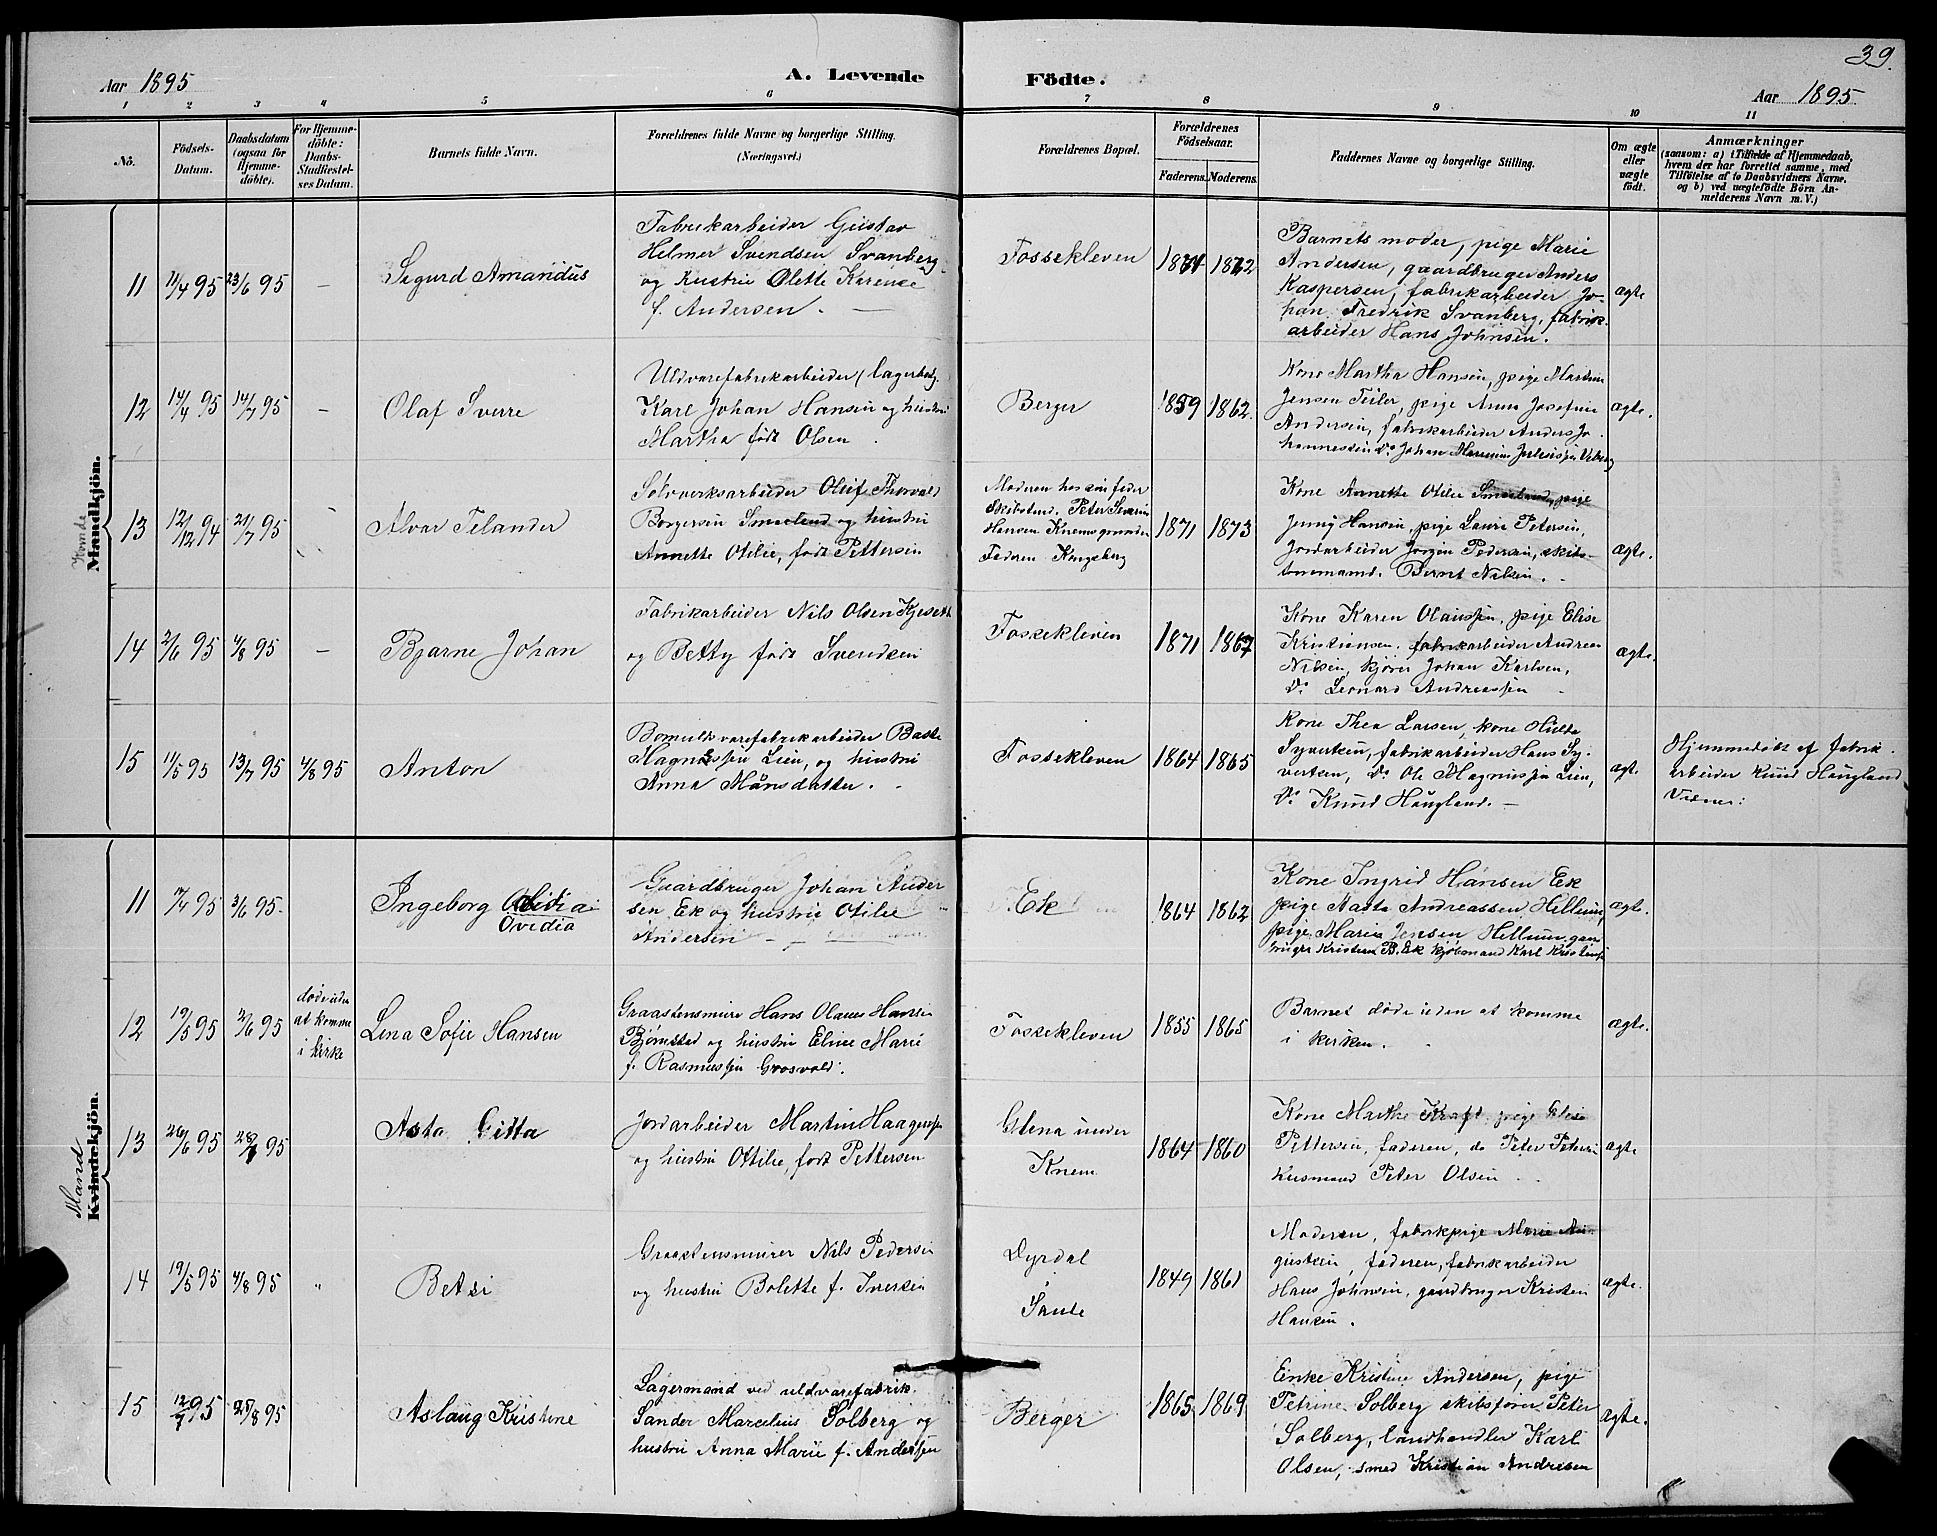 39.
Aar 1895
A. Levende Födte.
Aar 1895
1 2 3 4 5 6 7 8 9 10 11
Nö.
Födsels-Datum.
Daabsdatum (ogsaa för Hjemme-döbte).
For Hjemme-döbte: Daabs-Stadfæstel-ses Datum.
Barnets fulde Navn.
Forældrenes fulde Navne og borgerlige Stilling.
(Næringsvei.)
Forældrenes Bopæl.
Forældrenes Födselsaar.
Faderens. Moderens.
Faddernes Navne og borgerlige Stilling.
Om ægte eller uægte födt.
Anmærkninger
(saasom: a) i Tilfælde af Hjemmedaab, hvem der har forrettet samme, med Tilföielse af to Daabsvidners Navne. og b) ved uægtefödte Börn An-melderens Navn m. V.)
Kvinde
Mandkjön.
11
11/4 95
23/6 95
–
Sigurd Amandus
Fabrikarbeider Gustav
Helmer Svendsen Svanberg
og hustru Olette Karense
f. Andersen.
Fossekleven
1871
1872
Barnets moder, pige Marie
Andersen, gaardbruger Anders
Kaspersen, fabrikarbeider Jo-
han Fredrik Svanberg, fabrik-
arbeider Hans Johnsen.
ægte
12
14/4 95
14/7 95
–
Olaf Sverre
Uldvarefabrikarbeider (lagerbetj.
Karl Johan Hansen og hustru
Martha født Olsen
Berger
1859
1862.
Kone Martha Hansen, pige Martine
Jensen Teiler, pige Anna Josefine
Andersen, fabrikarbeider Anders Jo-
hannessen Do Johan
ægte.
13
12/12 94
21/7 95
Alvar Telander
Sølvverksarbeider Oluf Thorvald
Borgersen Smerlund og hustru
Annette Otilie, født Pettersen
Moderen hos sin fader
Skibstømd. Peter Severin
Hansen Knemsgrunden
Faderen Kongsberg
1871
1873
Kone Annette Otilie Smerlund, pige
Jenny Hansen, pige Laura Petersen,
Jordarbeider Jørgen Pedersen, skibs-
tømmermand. Bernt Nilsen.
ægte.
14
2/6 95
4/8 95
–
Bjarne Johan
Fabrikarbeider Nils Olsen Kjeseth
og Betty født Svendsen
Fossekleven
1871
1867
Kone Karen Olaussen, pige Elise
Kristiansen. fabrikarbeider Andreas
Nilsen, kjører Johan Karlsen,
Do Leonard Andreassen
ægte.
15
11/5 95
13/7 95
4/8 95
Anton
Bomuldsvarefabrikarbeider Baste
Magnessen Lien, og hustru
Anna Månsdatter.
Fossekleven
1864
1865
Kone Thea Larsen, kone Hulda
Syvertsen, fabrikarbeider Hans Sy-
vertsen, Do Ole Magnussen Lien,
Do Knud Haugland. –
ægte
Hjemmedøbt af fabrik-
arbeider Knud Haugland
Vidner:
Mand
Kvindekjön.
11
17/4 95
3/6 95.
Ingeborg Olidia
Ovidia
Gaardbruger Johan Ander
sen Ek og hustru Otilie
Andersen –
Ek
1864
1862
Kone Ingrid Hansen Ek
pige Aasta Andreassen Hellum,
pige Marie Jensen Hellum, gaard
bruger Kristian B. Ek kjøbmand Karl Kristensen
ægte.
12
19/5 95
2/6 95
døde uden
at komme
i kirke
Lina Sofie Hansen
Graastensmurer Hans Olaus Hansen
Bjømsted og hustru Eline Marie
f. Rasmussen Grosvold.
Fossekleven
1855
1865
Barnet døde uden at komme
i kirken.
ægte.
13
26/6 95
28/7 95
Asta Gitta
Jordarbeider Martin Haagensen
og hustru Ottilie, født Pettersen
Glena under
Knem
1864
1860
Kone Marthe Kraft, pige Elise
Pettersen, faderen, do Peter Petersen
husmand Peter Olsen
ægte
14
19/5 95
4/8 95
"
Betsi
Graastensmurer Nils Pedersen
og hustru Bolette f. Iversen
Dyrdal
i Sande
1849
1861
Moderen, fabrikpige Marie Au-
gustsen, faderen, fabrikarbeider
Hans Johnsen, gaardbruger Kristen
Hansen.
ægte.
15
12/7 95
25/8 95
Aslaug Kristine
Lagermand ved uldvarefabrik.
Sander Marcelius Solberg og
hustru Anna Marie f. Andersen
Berger
1865
1869
Enke Kristine Andersen, pige
Petrine Solberg skibsfører Peter
Solberg, landhandler Karl
Olsen, smed Kristian Andresen
ægte.